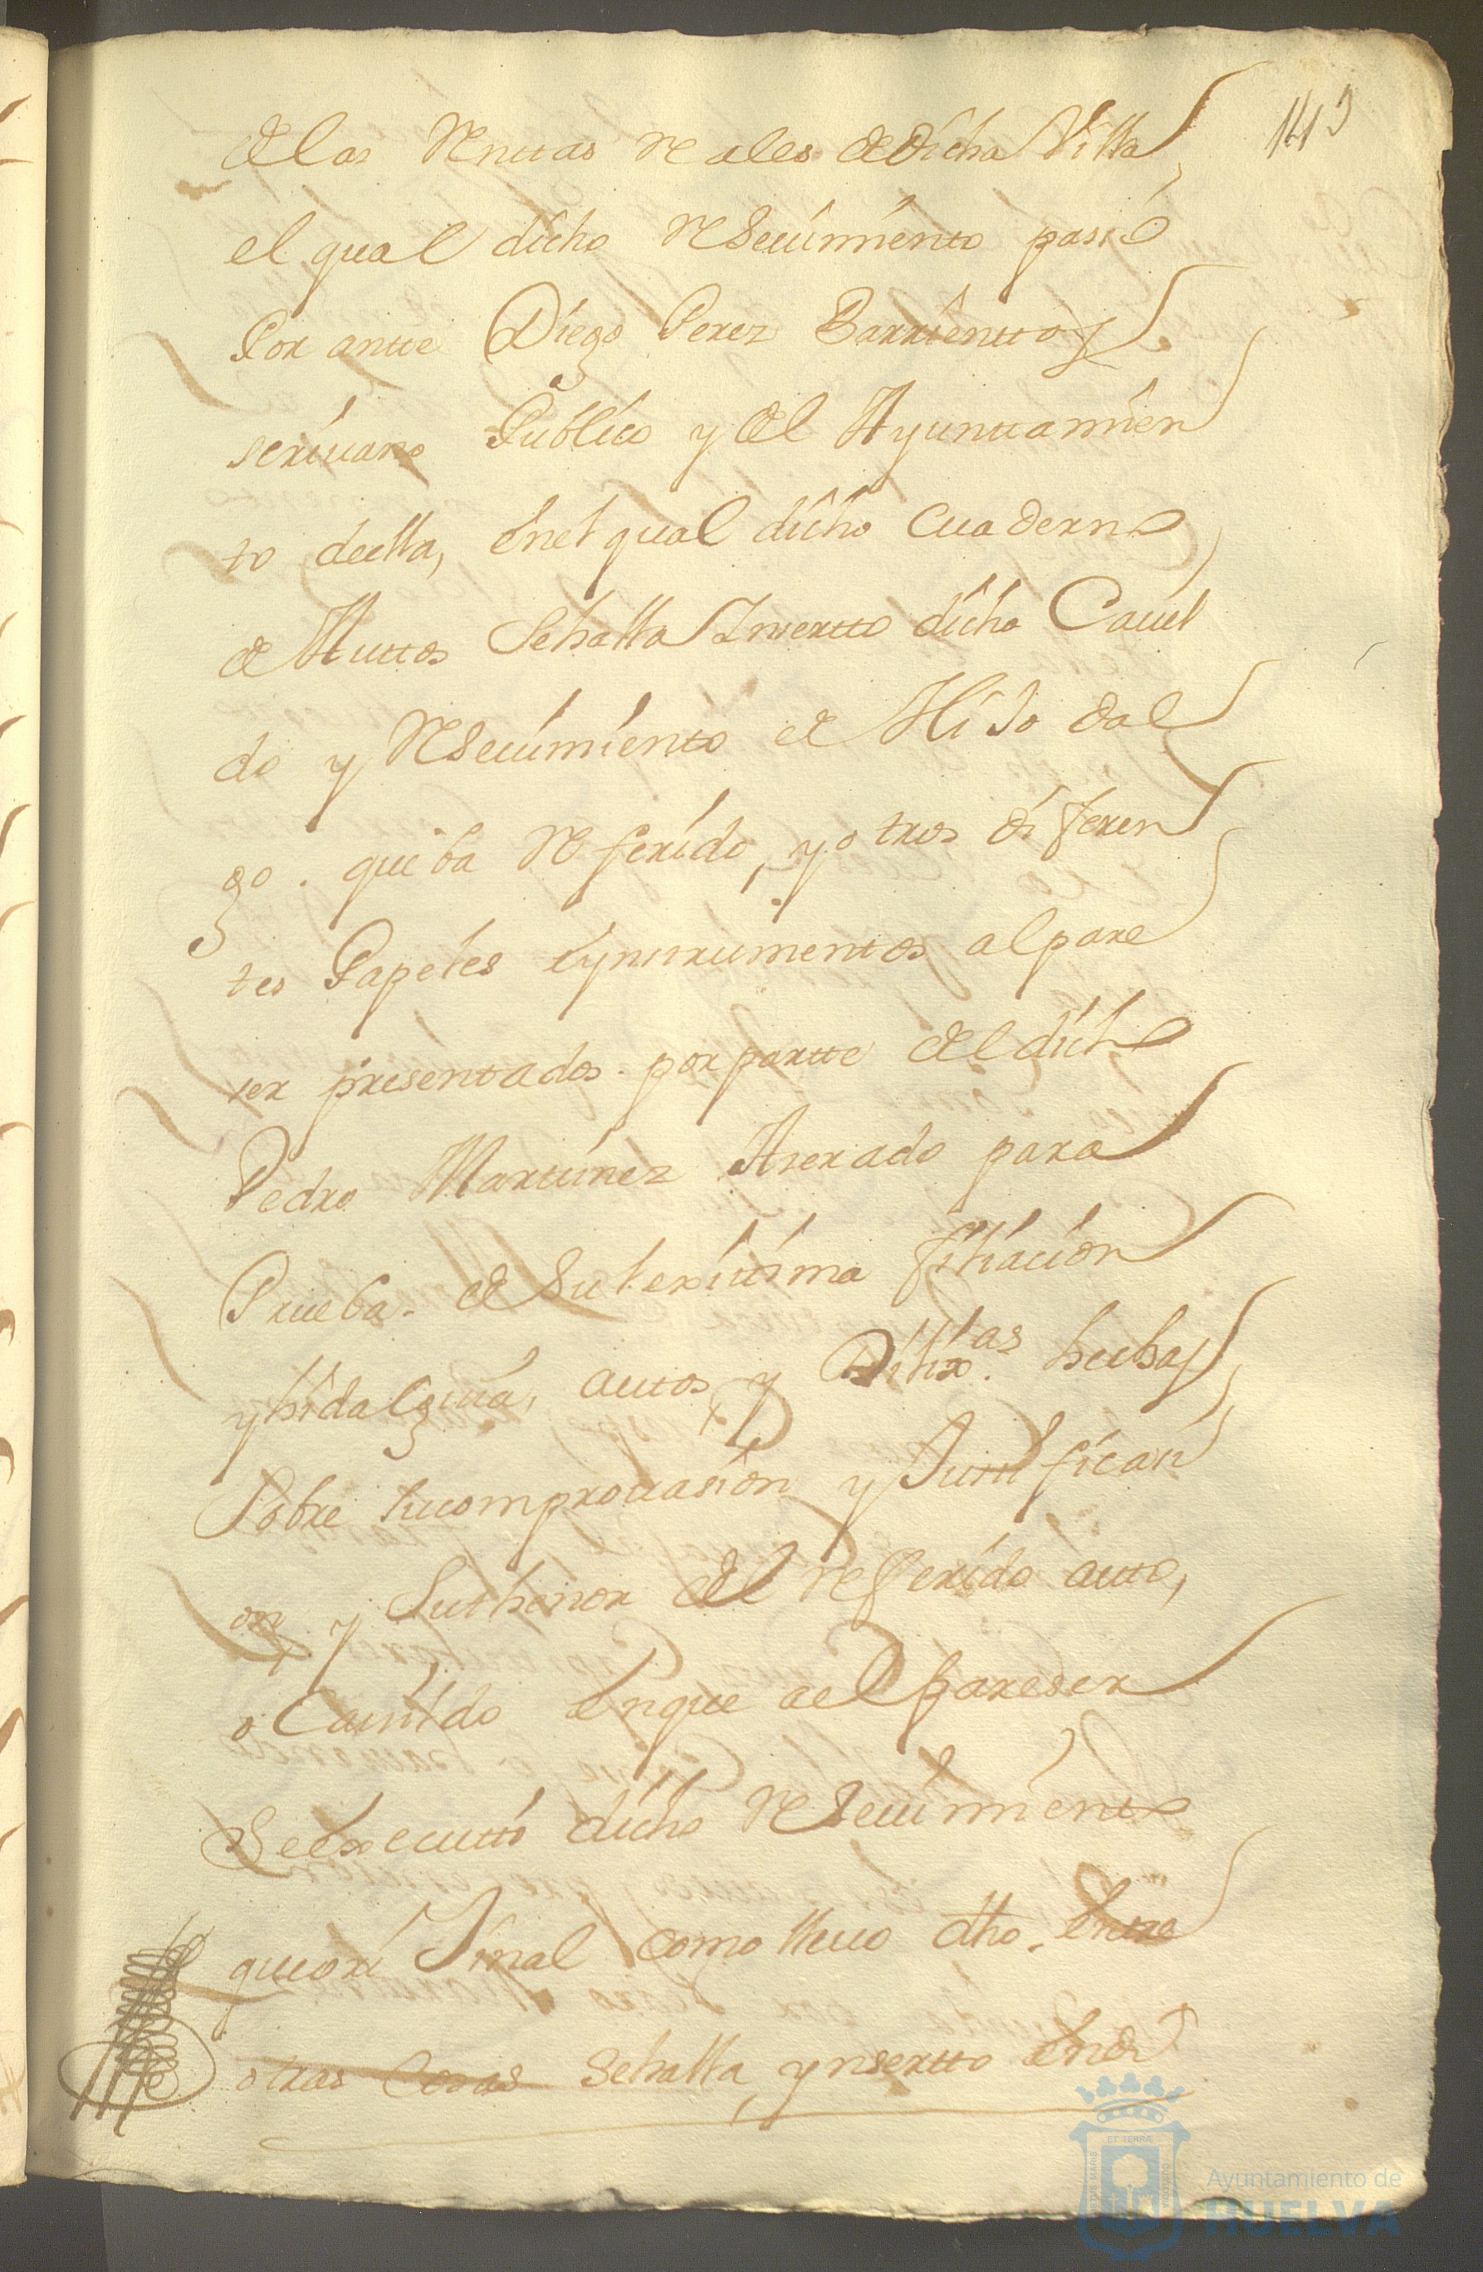 143
de las Renttas Reales de dicha Villa
el qual dicho Resevimiento pasó
Por antte Diego Perez Barrienttos
scrivano Publico y del Ayunttamien
to deella, enel qual dicho Cuaderno
de Auttos Sehalla Ynsertto dicho Cavil
do y Resevimiento de Hijo dal
go. queba Referido, y otros diferen
tes Papeles eynstrumentos alpare
ser presentados. por partte del dicho
Pedro Martinez para
Prueba. de Su lexitisima filiacion
y hidalguia, autos y Dilix.as hechas
Sobre sucomprovasion y Justificasi
on, y Suthenor del Referido auto,
o Cavildo enque al pareser
Seexecuttó dicho Resevimiento
queori Jinal como llevo dho. entre
otras Cosas Sehalla, ynsertto endi
ET TERRAE
Ayuntamiento de
HUELVA